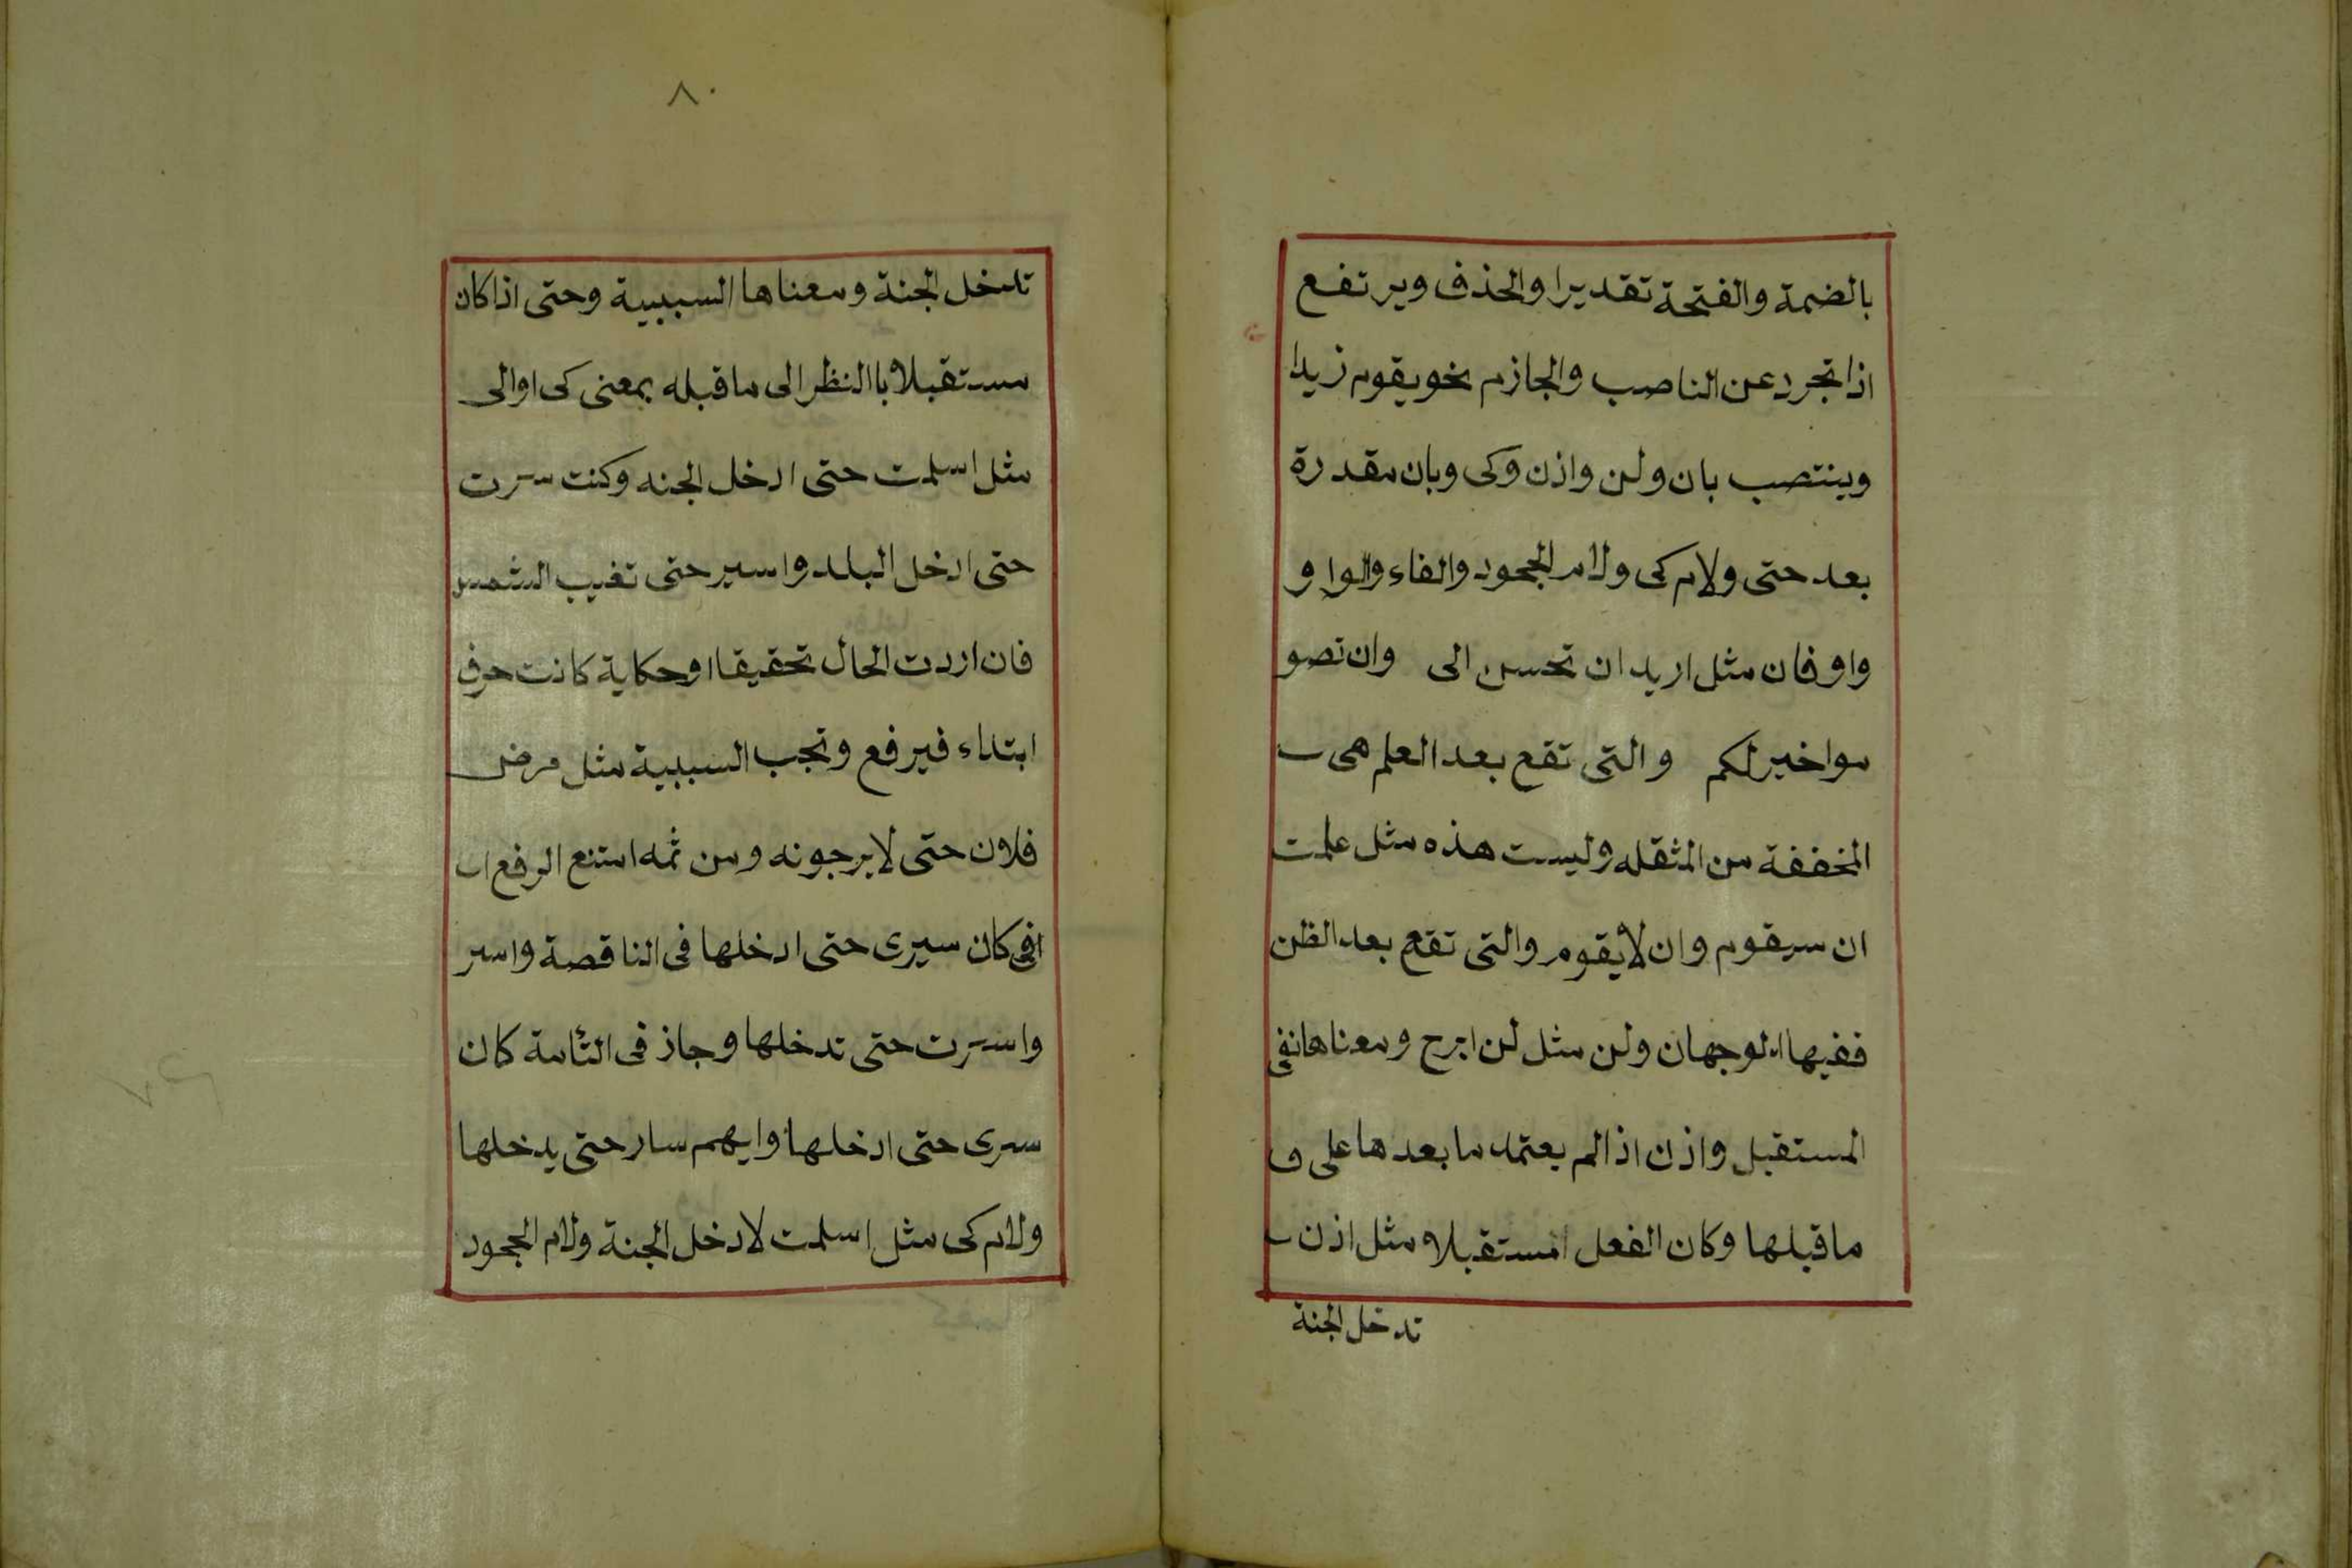 بالضمة والفتحة تقديرا والحذف ويرتفع
اذا تجرد عن الناصب والجازم نحو يقوم زيدا
وينتصب بان ولن واذن وكى وبان مقدرة
بعد حتى ولام كى ولام الجحود والفاء والواو
واو فان مثل اريد ان تحسن الى وان تصو
موا خير لكم والتى تقع بعد العلم هى
المخففة من المثقله وليست هذه مثل علمت
ان سيقوم وان لا يقوم والتى تقع بعد الظن
ففيها الوجهان ولن مثل لن ابرح ومعناها نفى
المستقبل واذن اذا لم يعتمد ما بعدها على
ما قبلها وكان الفعل مستقبلا مثل اذن
تدخل الجنة
٨٠
تدخل الجنة ومعناها السببية وحتى اذا كان
مستقبلا باالنظر الى ما قبله بمعنى كى او الى
مثل اسلمت حتى ادخل الجنه وكنت سرت
حتى ادخل البلد واسير حتى تغيب الشمس
فان اردت الحال تحقيقا او حكاية كانت حرف
ابتداء فيرفع وتجب السببية مثل مرض
فلان حتى لا يرجونه ومن ثمه امتنع الرفع
فى كان سيرى حتى ادخلها فى الناقصة واسر
واسرت حتى تدخلها وجاز فى التامة كان
سرى حتى ادخلها وايهم سار حتى يدخلها
ولام كى مثل اسلمت لادخل الجنة ولام الجحود